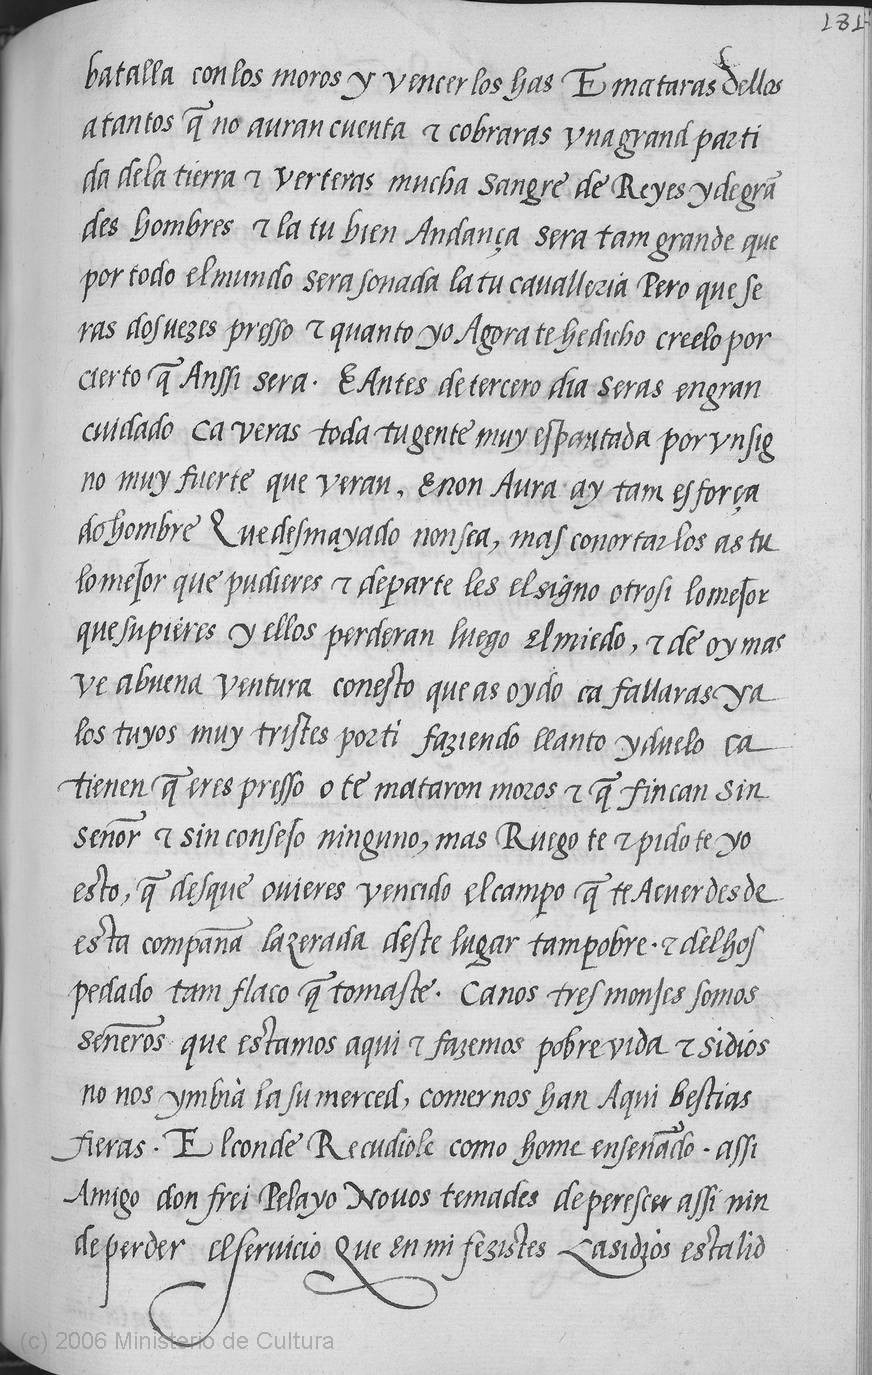 181
batalla con los moros y vencer los has E mataras dellos
atantos q̃ no auran cuenta & cobraras vna grand parti
da de la tierra & verteras mucha sangre de Reyes y de grã
des hombres & la tu bien Andança sera tam grande que
por todo el mundo sera sonada la tu cavalleria Pero que se
ras dos uezes presso & quanto yo Agora te he dicho creelo por
cierto q̃ Anssi sera. E Antes de tercero dia seras en gran
cuidado ca veras toda tu gente muy espantada por vn sig
no muy fuerte que veran, E non Aura ay tam esforça
do hombre Que desmayado non sea, mas conortar los as tu
lo mejor que pudieres & departe les el signo otrosi lo mejor
que supieres y ellos perderan luego El miedo, & de oy mas
ve a buena ventura con esto que as oydo ca fallaras ya
los tuyos muy tristes por ti faziendo llanto y duelo ca
tienen q̃ eres presso o te mataron moros & q̃ fincan sin
señor & sin consejo ninguno, mas Ruego te & pido te yo
esto, q̃ desque ouieres vencido el campo q̃ te Acuerdes de
esta compaña lazerada deste lugar tam pobre. & del hos
pedado tam flaco q̃ tomaste. Ca nos tres monjes somos
señeros que estamos aqui & fazemos pobre vida & si dios
no nos ymbia la su merced, comer nos han Aqui bestias
fieras. El conde Recudiole como home enseñado. assi
Amigo don frei Pelayo No uos temades de perescer assi nin
de perder el servicio Que En mi fezistes Ca si dios esta lid
(c) 2006 Ministerio de Cultura